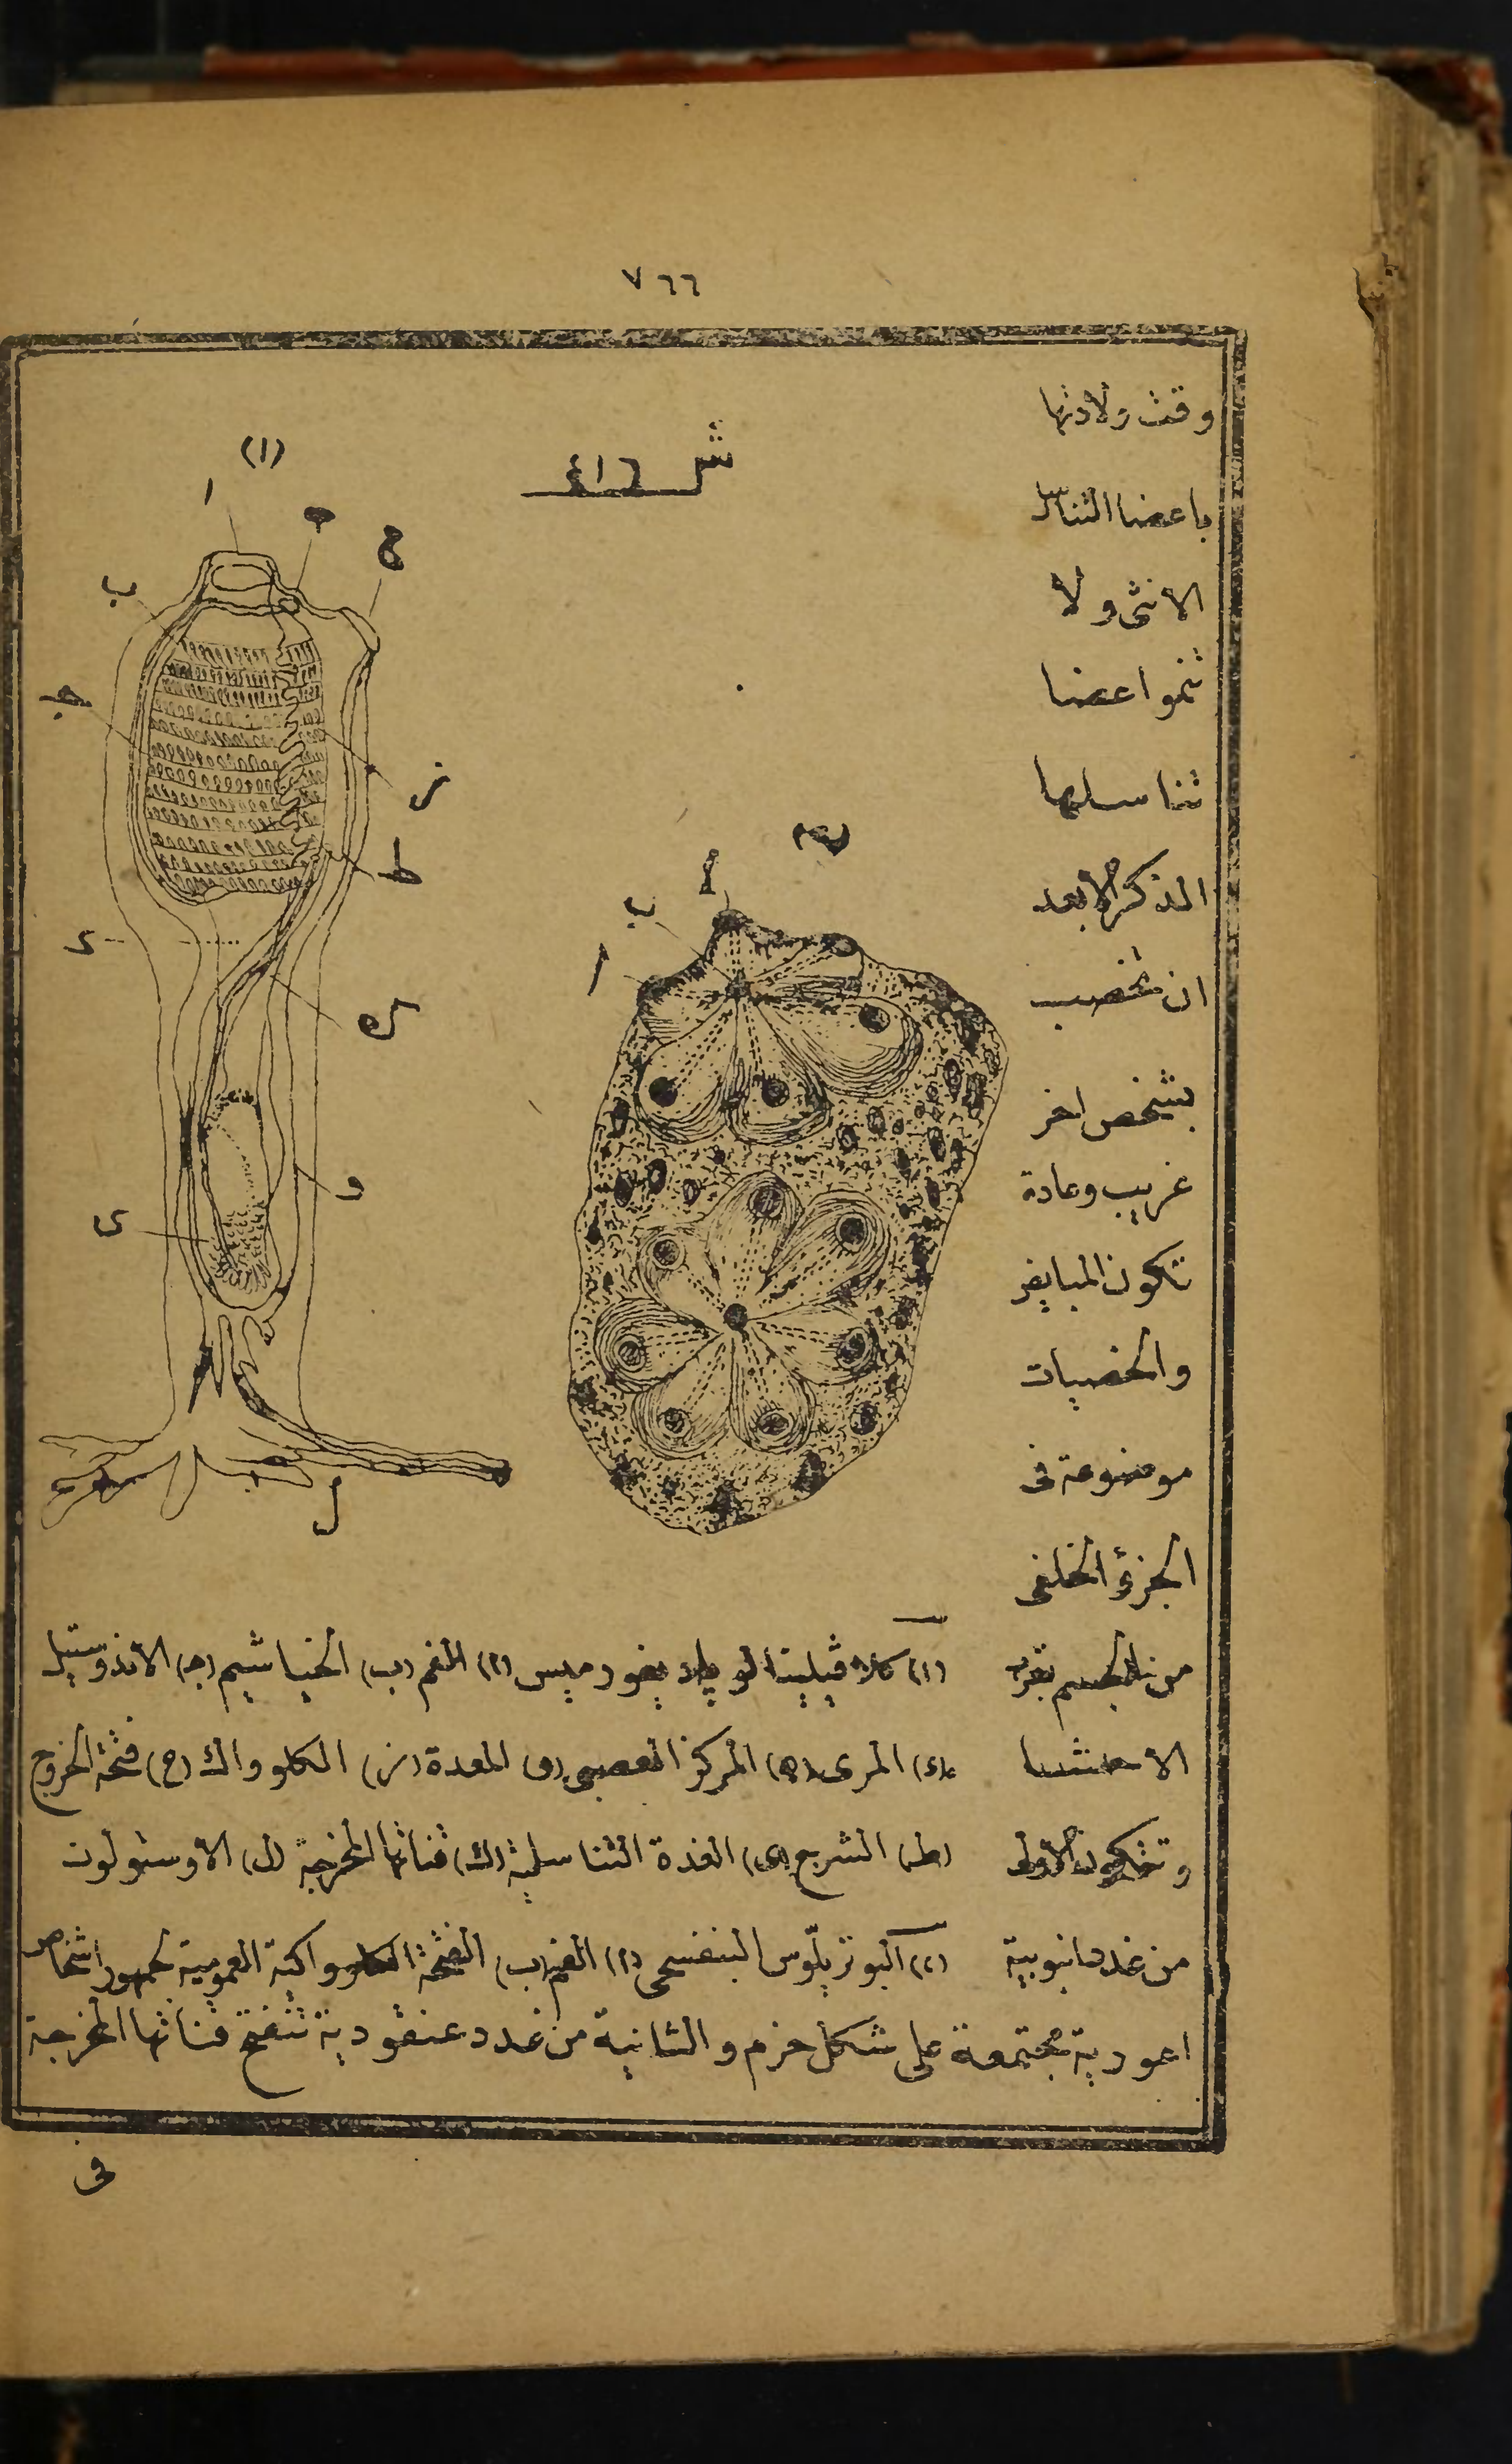 ٧٦٦
وقت ولادتها
باعضا التناسل
الانثى ولا
تنموا عضا
تناسلها
الذكر الا بعد
ان تخصب
بشخص اخر
غريب وعادة
تكون المبايض
والخصيات
موضوعة فى
الجزؤ الخلفى
من الجسم بقرب
الاحشا
وتتكون الاولى
من غدد انبوبية
اعورية مجتمعة على شكل حزم والثانية من غدد عنقودية تنفتح قناتها المخرجة
فى
ش ٤١٦
(١)
ا
ب
ح
ز
ط
و
ى
ل
ب
ا
(١) الفم (ب) الخياشيم (جـ) الاندوستيل
(ء) المرى (ه) المركز العصبى (و) المعدة (ز) الكلوواك (ح) فتحة الخروج
(ط) الشرج (ى) الغدة التناسلية (ك) قناتها المخرجة (ل) الاوستولون
(٢) البوتريلّوس البنفسجى (ا) الفم (ب) الفتحة الكلوواكية العمومية لجمهور اشخاص